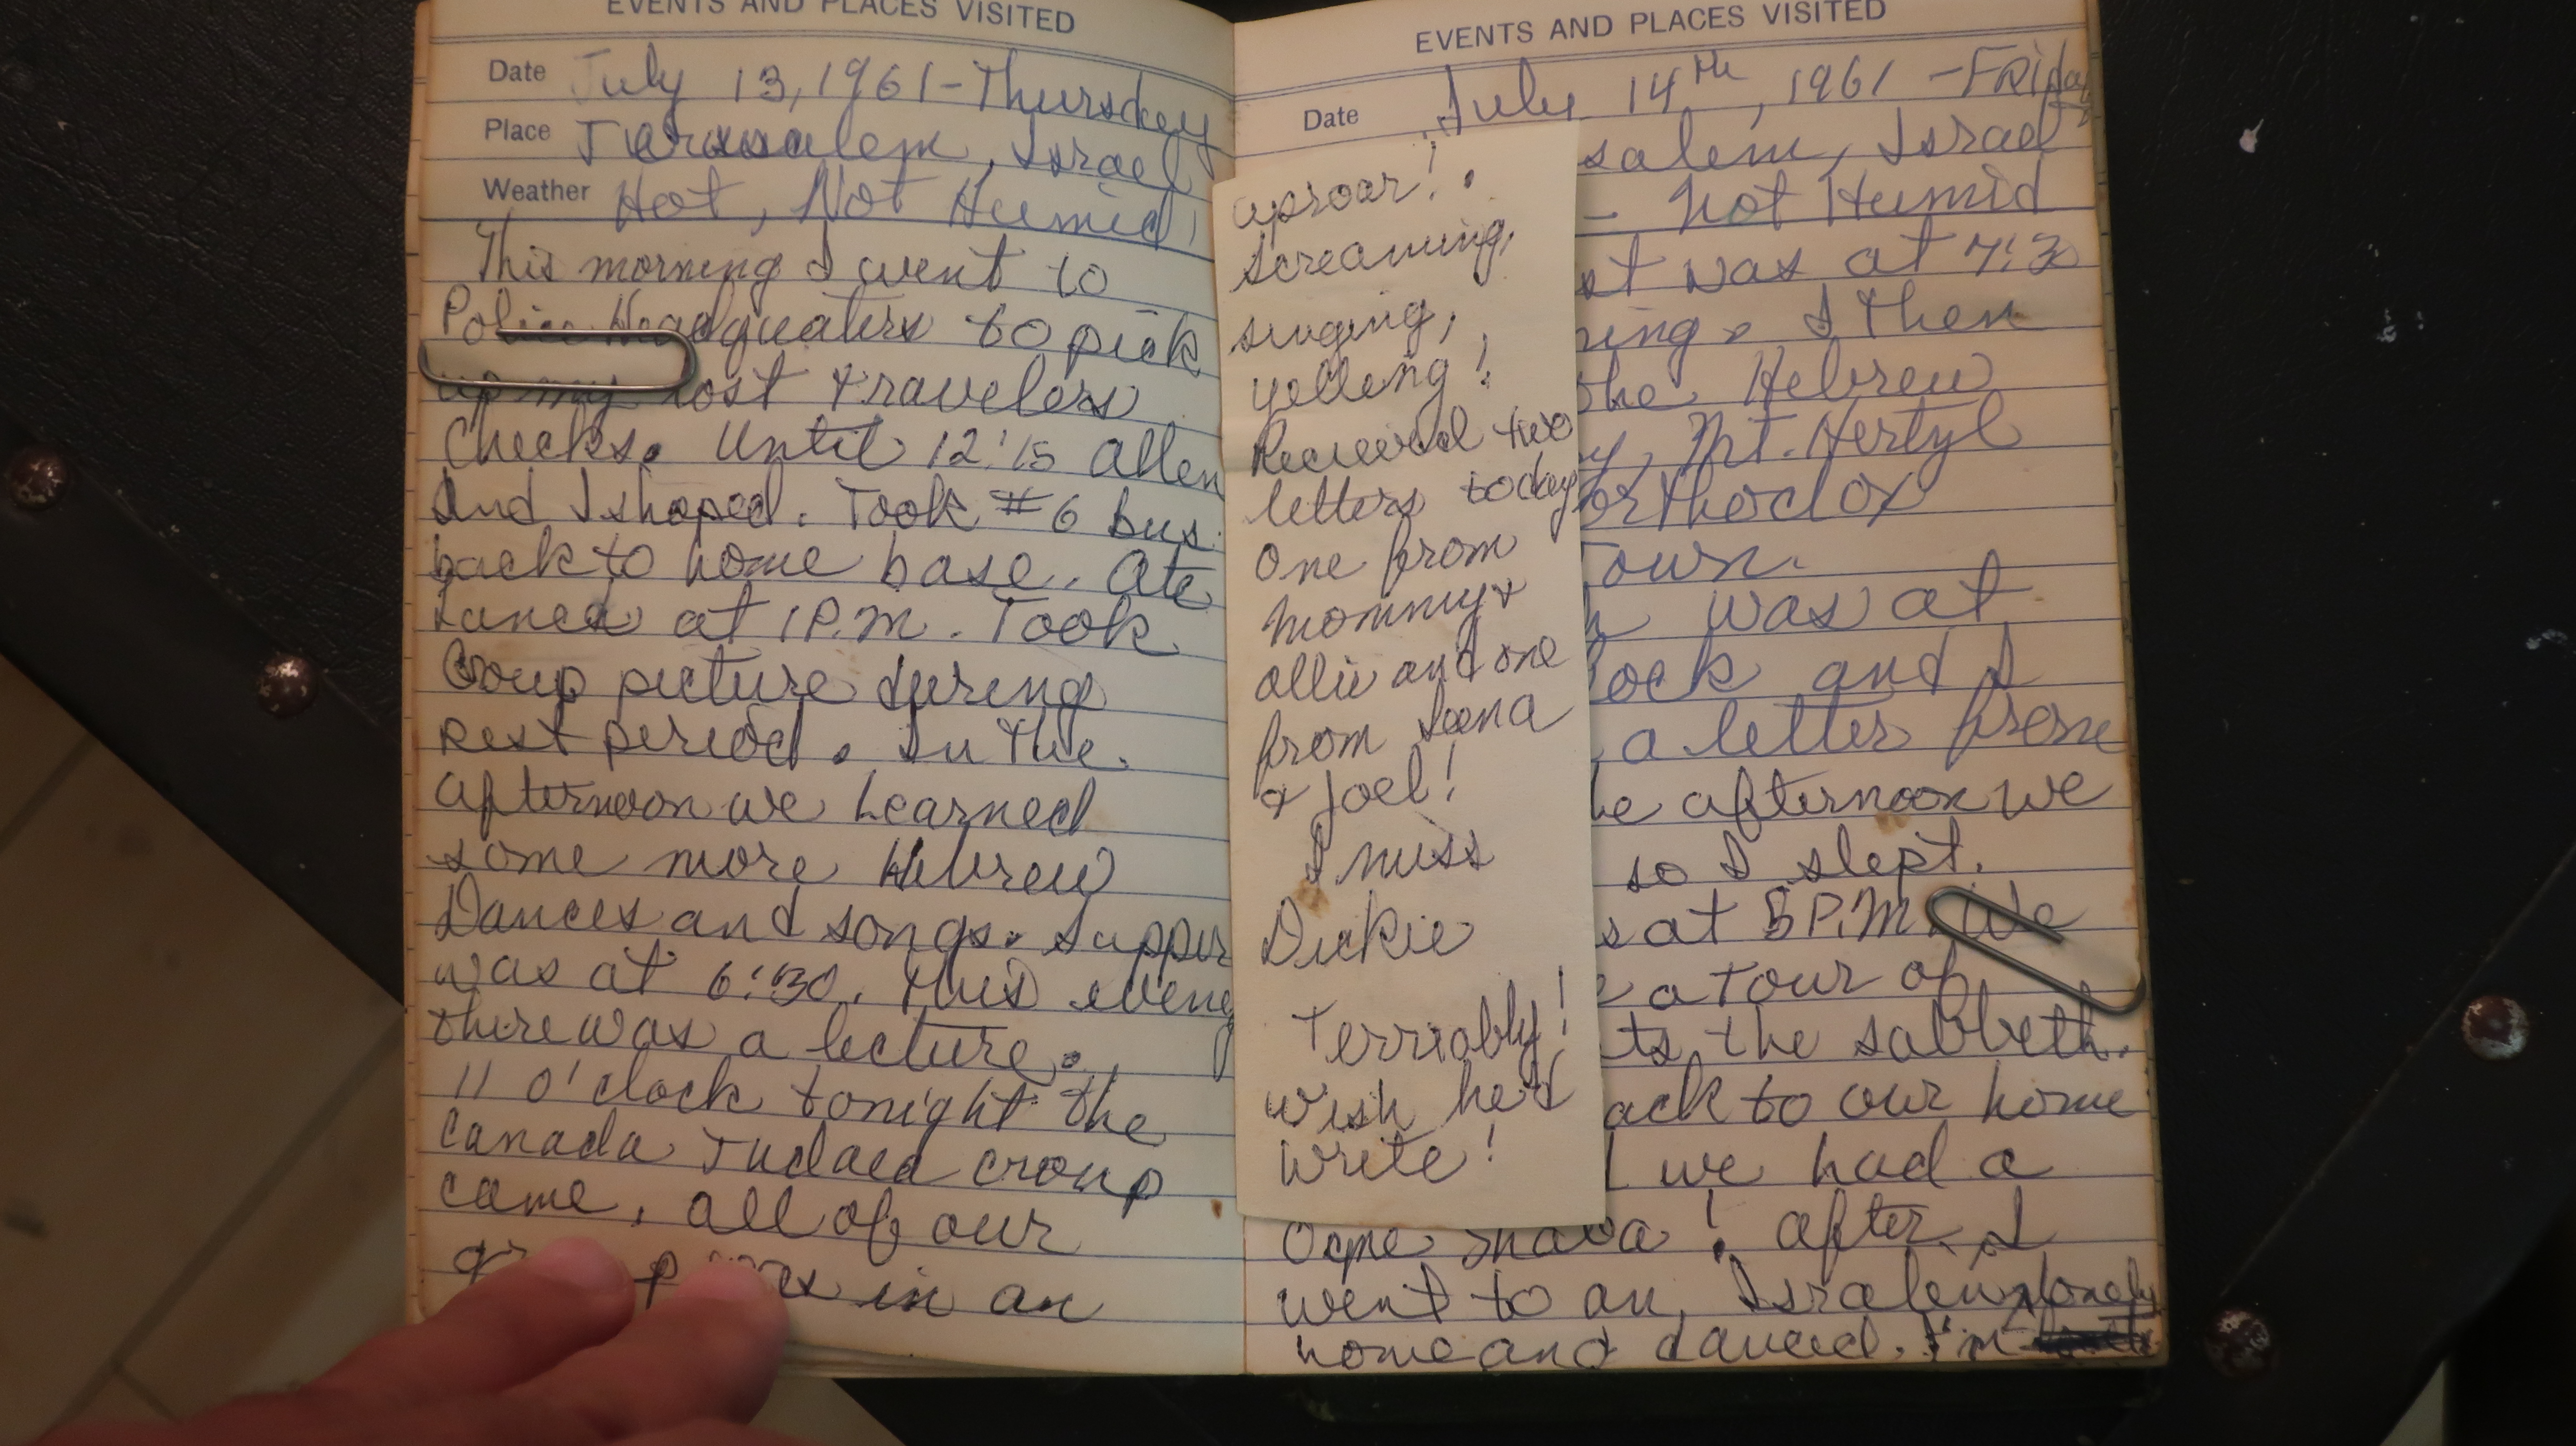 EVENTS AND PLACES VISITED
Date July 13, 1961 - Thursday
Place Jerusalem, Israel
Weather Hot, Not Humid!
This morning I went to
Police Headquaters to pick
up my lost travelers
Checks. Until 12:15 Allen
and I shoped. Took #6 bus
back to home base. Ate
Lunch at 1 P.M. Took
Group picture during
rest period. In the
afternoon we Learned
some more Hebrew
Dances and songs. Supper
was at 6:30. This evening
there was a lecture.
11 o'clock tonight the
Canada Judaea Group
came. All of our
in an
uproar!
screaming,
singing,
yelling!
Recieved two
letters today
One from
mommy &
allie and one
from
& Joel!
I miss
Dickie
Terriably!
wish he'd
write!
EVENTS AND PLACES VISITED
Date July 14th, 1961 - Friday
salem, Israel
- not Humid
st was at 7:30
ning. I then
the Hebrew
y, Mt. Hertzyl
orthodox
Town.
h was at
lock and I
a letter from
he afternoon we
so I slept.
s at 5 P.M. We
e a tour of
ts the sabbeth.
ack to our home
we had a
! after I
went to an Israleiw
home and danced. I'm lonely